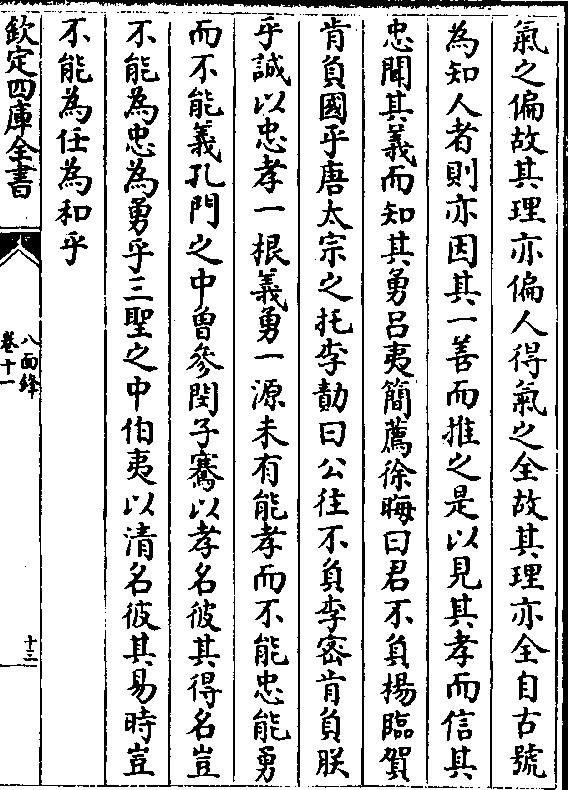 氣之偏故其理亦偏人得氣之全故其理亦全自古號
為知人者則亦因其一善而推之是以見其孝而信其
忠聞其義而知其勇呂夷簡薦徐晦曰君不負楊臨賀
肯負國乎唐太宗之托李勣曰公往不負李宻肯負朕
乎誠以忠孝一根義勇一源未有能孝而不能忠能勇
而不能義孔門之中曾參閔子騫以孝名彼其得名豈
不能為忠為勇乎三聖之中伯夷以清名彼其易時豈
不能為任為和乎
欽定四庫全書
八面鋒
卷十一
十三